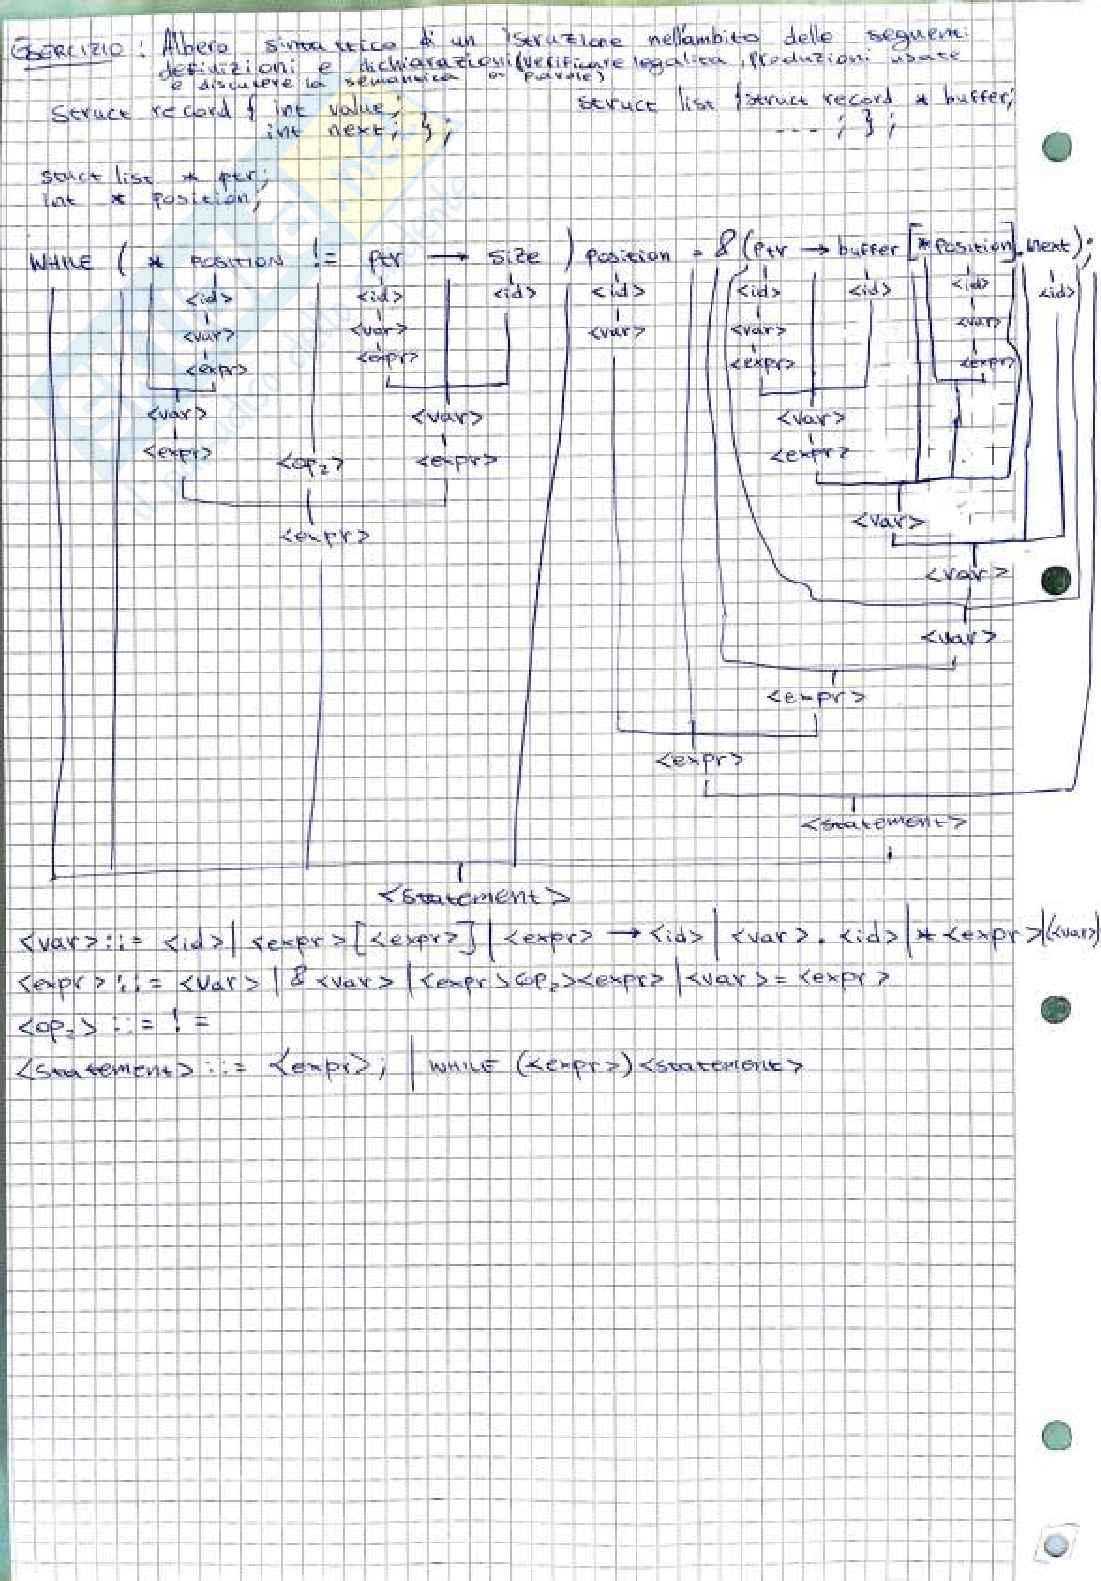 ESERCIZIO: Albero sintattico di un istruzione nell'ambito delle seguenti
definizioni e dichiarazioni (verificare legalità, produzioni usate
e discutere la semantica a parole)
struct record { int value; struct list { struct record * buffer;
int next; }; ---; };
struct list * ptr;
int * position;
WHILE ( * POSITION != ptr → size ) position = & (ptr → buffer [*position].next);
<id> <id> <id> <id> <id> <id> <id> <id>
<var> <var> <var> <var> <var>
<expr> <expr> <expr> <expr>
<var> <var> <var>
<expr> <op2> <expr> <expr>
<var>
<expr>
<var>
<var>
<expr>
<expr>
<statement>
<statement>
<var> ::= <id> | <expr> [<expr>] | <expr> → <id> | <var> . <id> | * <expr> | (<var>)
<expr> ::= <var> | & <var> | <expr> <op2> <expr> | <var> = <expr>
<op2> ::= !=
<statement> ::= <expr>; | WHILE (<expr>) <statement>